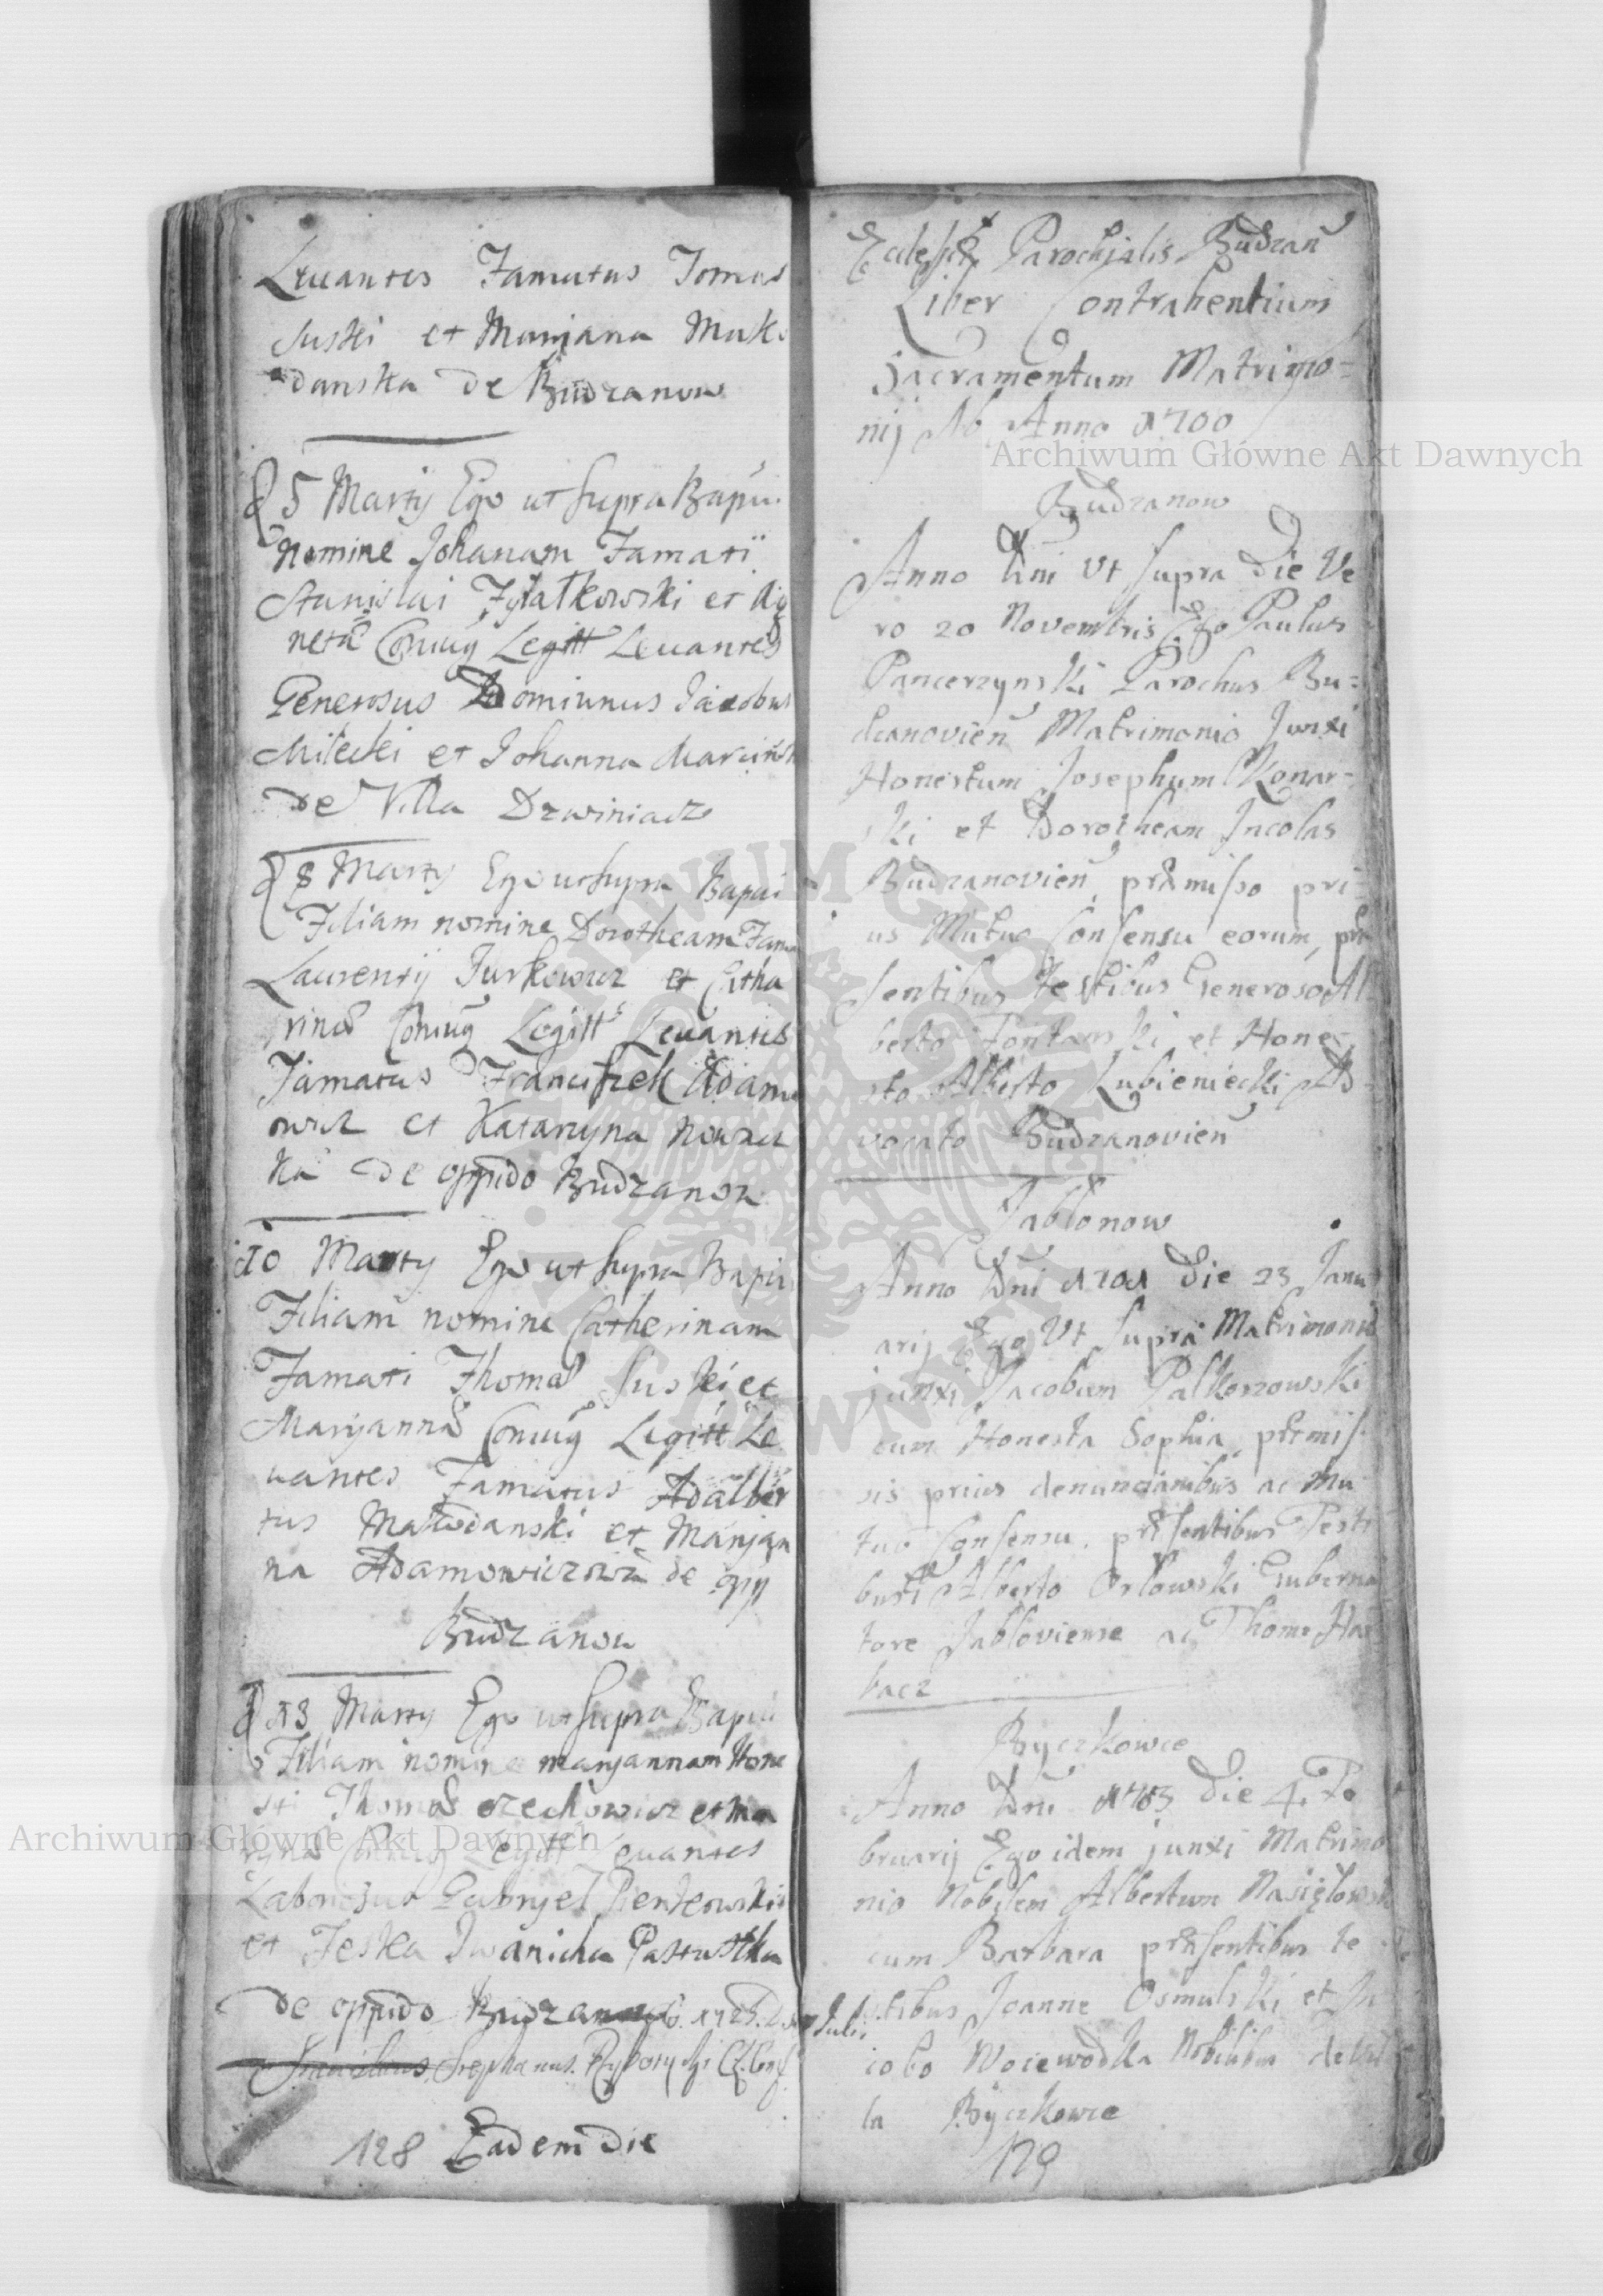 Leuantes Famatus Tomas
Suski et Maryjana Mako
danska de Budzanow
5 Martij Ego ut supra Bapti
nomine Johanam Famati
Stanislai Fylatkowski et Ag
netæ Coniug Legitt Leuantes
Generosus Dominus Jacobus
Milecki et Johanna Marcinsk
de Villa Dzwiniacz
8 Martij Ego ut supra Bapti
Filiam nomine Dorotheam Fam
Laurentij Jurkowicz et Catha
rinæ Coniug Legitt Leuantes
Famatus Franciszek Adamo
owicz et Katarzyna
ka de oppido Budzanow
10 Martij Ego ut supra Bapti
Filiam nomine Catherinam
Famati Thomæ Suski et
Maryjannæ Coniug Legitt Le
uantes Famatus Adalber
tus Makodanski et Maryjan
na Adamowiczowa de opp
Budzanow
13 Martij Ego ut supra Bapti
Filiam nomine Maryjannam Hone
sti Thomæ orzechowicz et Ma
Coniug Legitt Leuantes
Laboriosus Gabryel Pienkowski
et Feska Iwanicha Pastuszka
de oppido 1725
Stephanus
128 Eadem Die
Ecclesiæ Parochialis Budzan
Liber Contrahentium
Sacramentum Matrimo=
nij Ab Anno 1700
Budzanow
Anno Dni Vt supra Die Ve
ro 20 Novembris Ego Paulus
Pancerzynski Parochus Bu=
dzanovien Matrimonio Junxi
Honestum Josephum Konar=
ski et Dorotheam Incolas
Budzanovien, præmisso pri=
us Mutuo Consensu eorum, præ
sentibus testibus Generoso Al
berto Fontanski et Hone=
sto Alberto Lubieniecki Ad=
vocato Budzanovien
Jablonow
Anno Dni 1701 Die 23 Janu
arij Ego Vt Supra Matrimonio
junxi Jacobum Palkorzowski
cum Honesta Sophia, præmis
sis prius denunciationibus ac Mu
tuo Consensu, præsentibus Testi
bus Alberto Orlowski Guberna
tore Jabloviense ac Thoma Har
bacz
Byczkowce
Anno Dni 1703 Die 4. Fe
bruarij Ego idem junxi Matrimo
nio Nobilem Albertum Nasięlowski
cum Barbara præsentibus te
stibus Joanne Osmulski et Ja
cobo Wojewodka Nobilibus de Vil
la Byczkowce
129
Archiwum Główne Akt Dawnych
Archiwum Główne Akt Dawnych